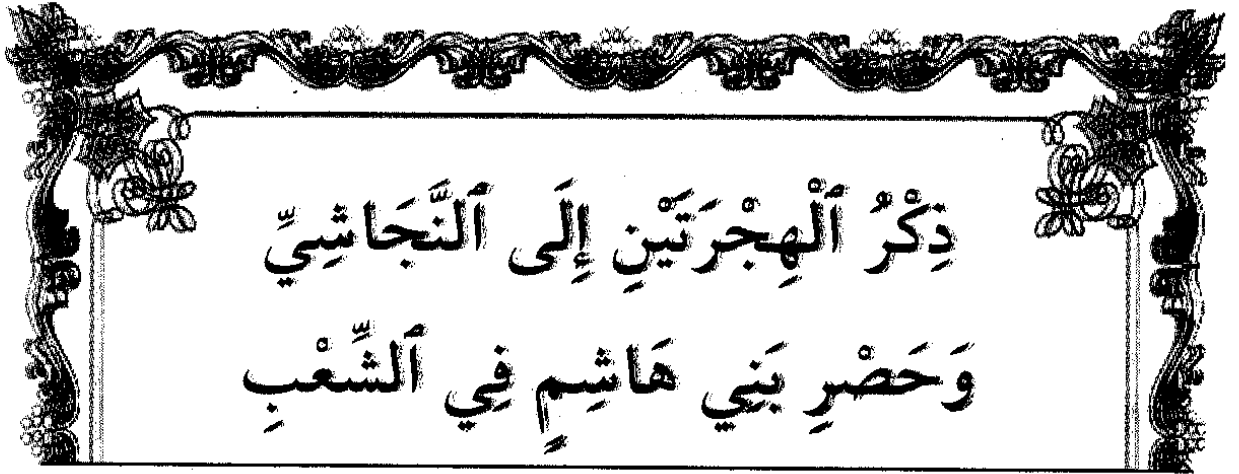 ذِكْرُ ٱلْهِجْرَتَيْنِ إِلَى ٱلنَّجَاشِيِّ
وَحَصْرِ بَنِي هَاشِمٍ فِي ٱلشِّعْبِ